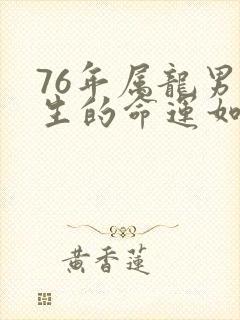 76年属龍男
生的命運如
黄香蓮